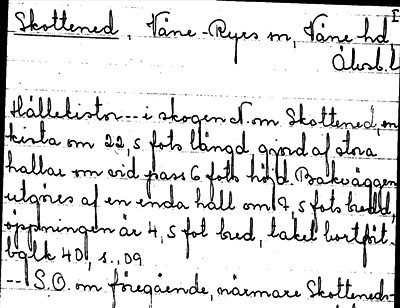 Skottened, Väne-Ryrs sn, Väne hd,
Älvsb. l
Hällekistor -- i skogen N. om Skottened, en
kista om 22,5 fots längd, gjord af stora
hallar om vid pass 6 fots höjd. Bakväggen
utgöres af en enda häll om 7,5 fots bredd,
öppningen är 4,5 fot bred, taket bortfört.
s. 09
-- S.O. om föregående, närmare Skotteneds-